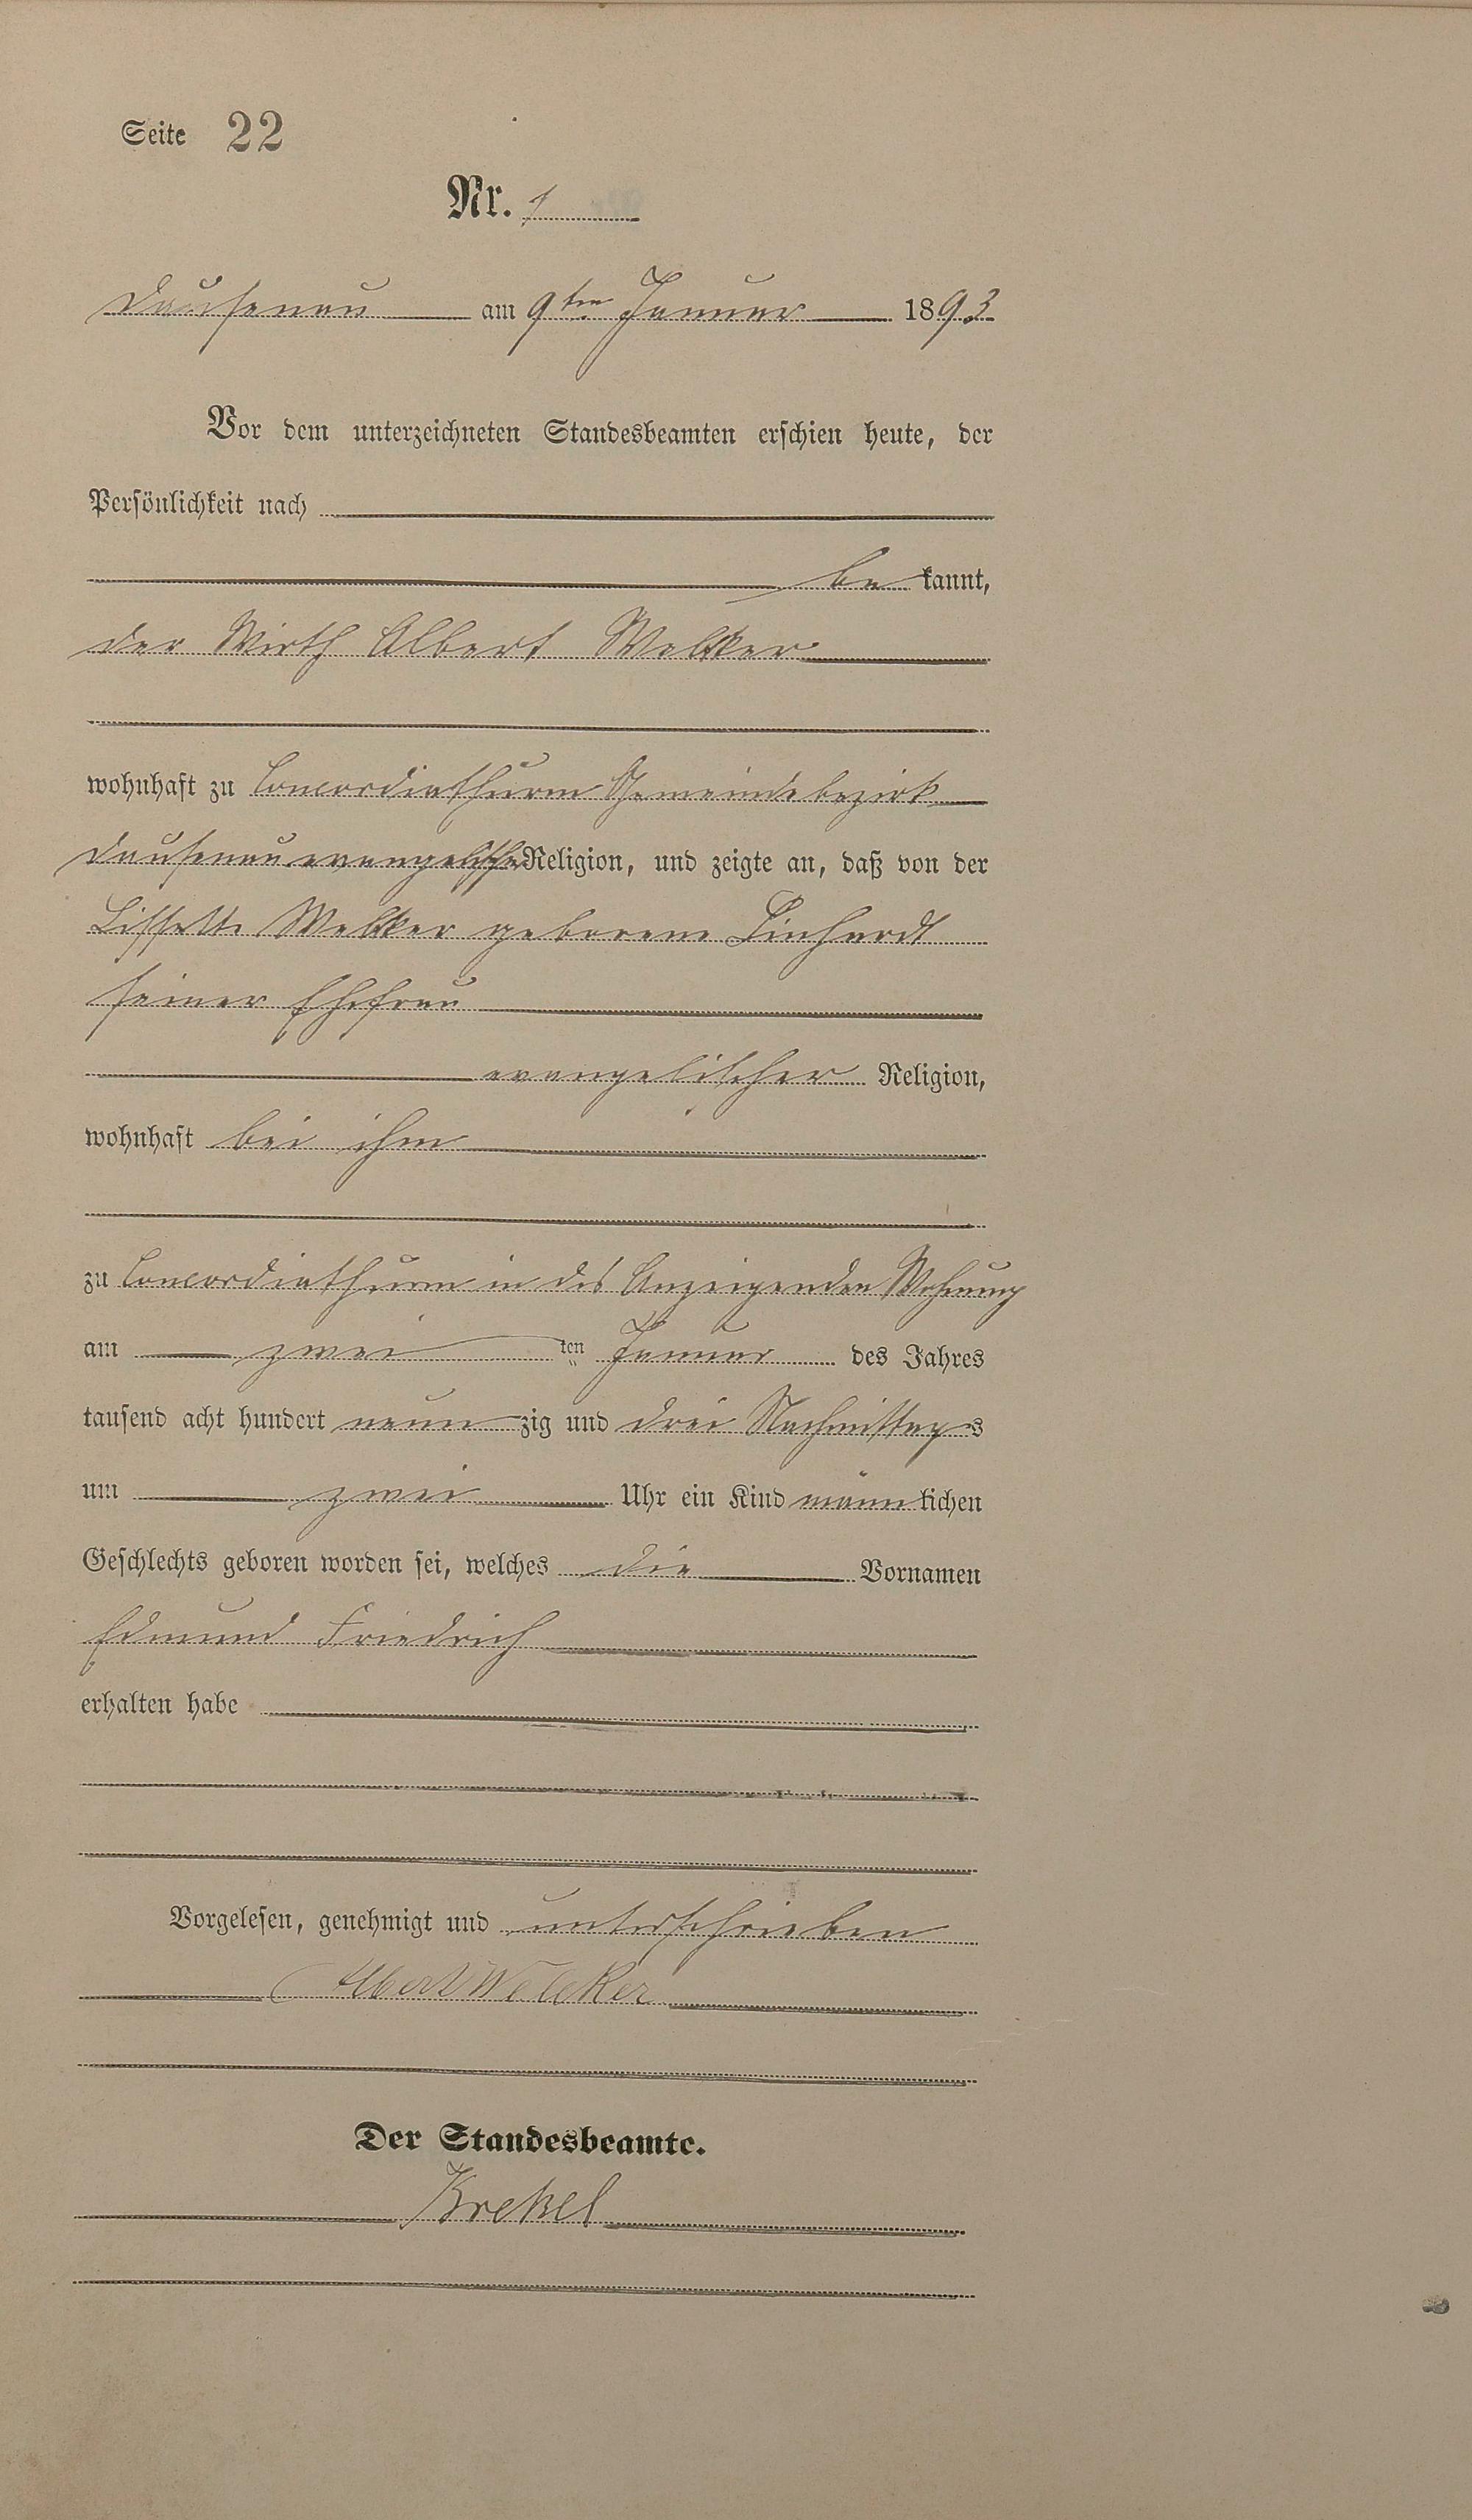 Seite 22
Nr. 1
Dausenau am 9ten Januar 1893
Vor dem unterzeichneten Standesbeamten erschien heute, der
Persönlichkeit nach
be kannt,
der Wirth Albert Welker
wohnhaft zu Concordiathurm Gemeindebezirk
Dausenau evangelischer Religion, und zeigte an, daß von der
Lissette Welker geborene Linhardt
seiner Ehefrau
evangelischer Religion,
wohnhaft bei ihm
zu Concordiathurm in des Anzeigenden Wohnung
am zwei ten Januar des Jahres
tausend acht hundert neun zig und drei Nachmittags
um zwei Uhr ein Kind männlichen
Geschlechts geboren worden sei, welches die Vornamen
Edmund Friedrich
erhalten habe
Vorgelesen, genehmigt und unterschrieben
Albert Welcker
Der Standesbeamte.
Krekel